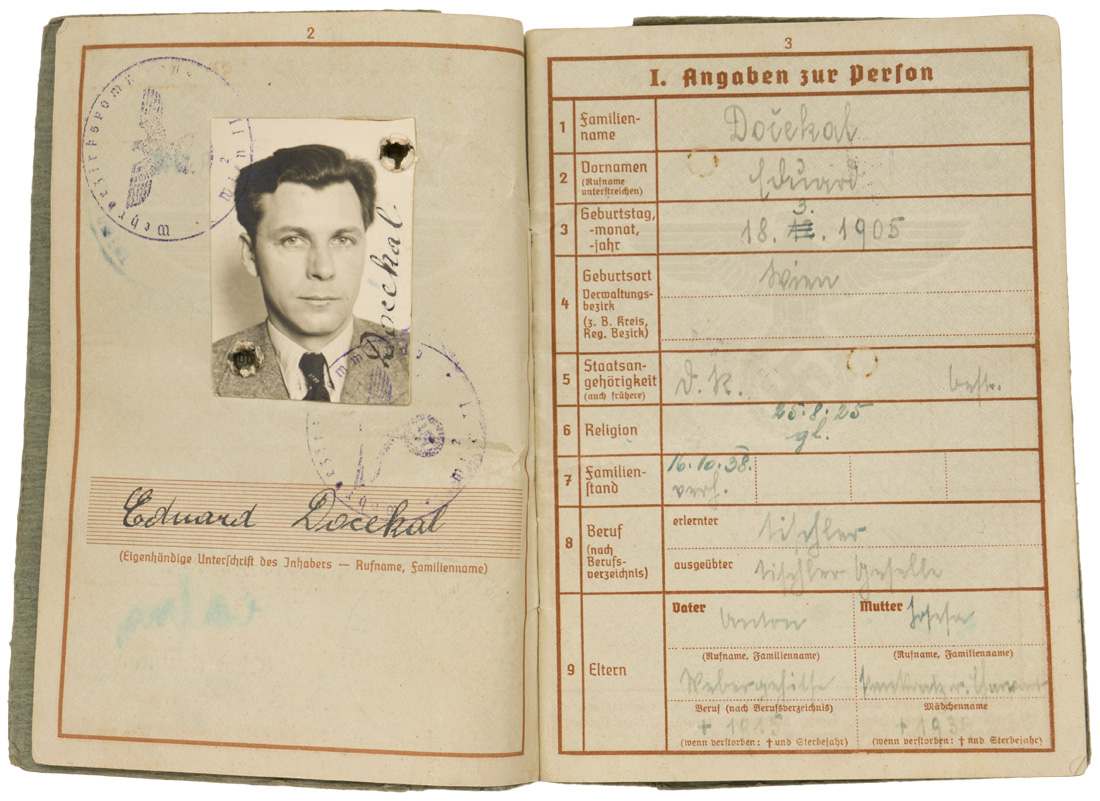 2
Wien 2
Docekal
Eduard Docekal
(Eigenhändige Unterschrift des Inhabers — Rufname, Familienname)
3
I. Angaben zur Person
1 Familien-
name
Dočekal
2 Vornamen
(Rufname
unterstreichen)
Eduard
3 Geburtstag,
-monat,
-jahr
3.
18. . 1905
4 Geburtsort
Wien
Verwaltungs-
bezirk
(z. B. Kreis,
Reg. Bezirk)
5 Staatsan-
gehörigkeit
(auch frühere)
D. R.
6 Religion
25.8.25
gl.
7 Familien-
stand
16.10.38.
verh.
8 Beruf
(nach
Berufs-
verzeichnis)
erlernter Tischler
ausgeübter Tischler Geselle
9 Eltern
Vater Anton
Mutter Josefa
(Rufname, Familienname) (Rufname, Familienname)
Webergehilfe
Beruf (nach Berufsverzeichnis) Mädchenname
† 1915
(wenn verstorben: † und Sterbejahr) (wenn verstorben: † und Sterbejahr)